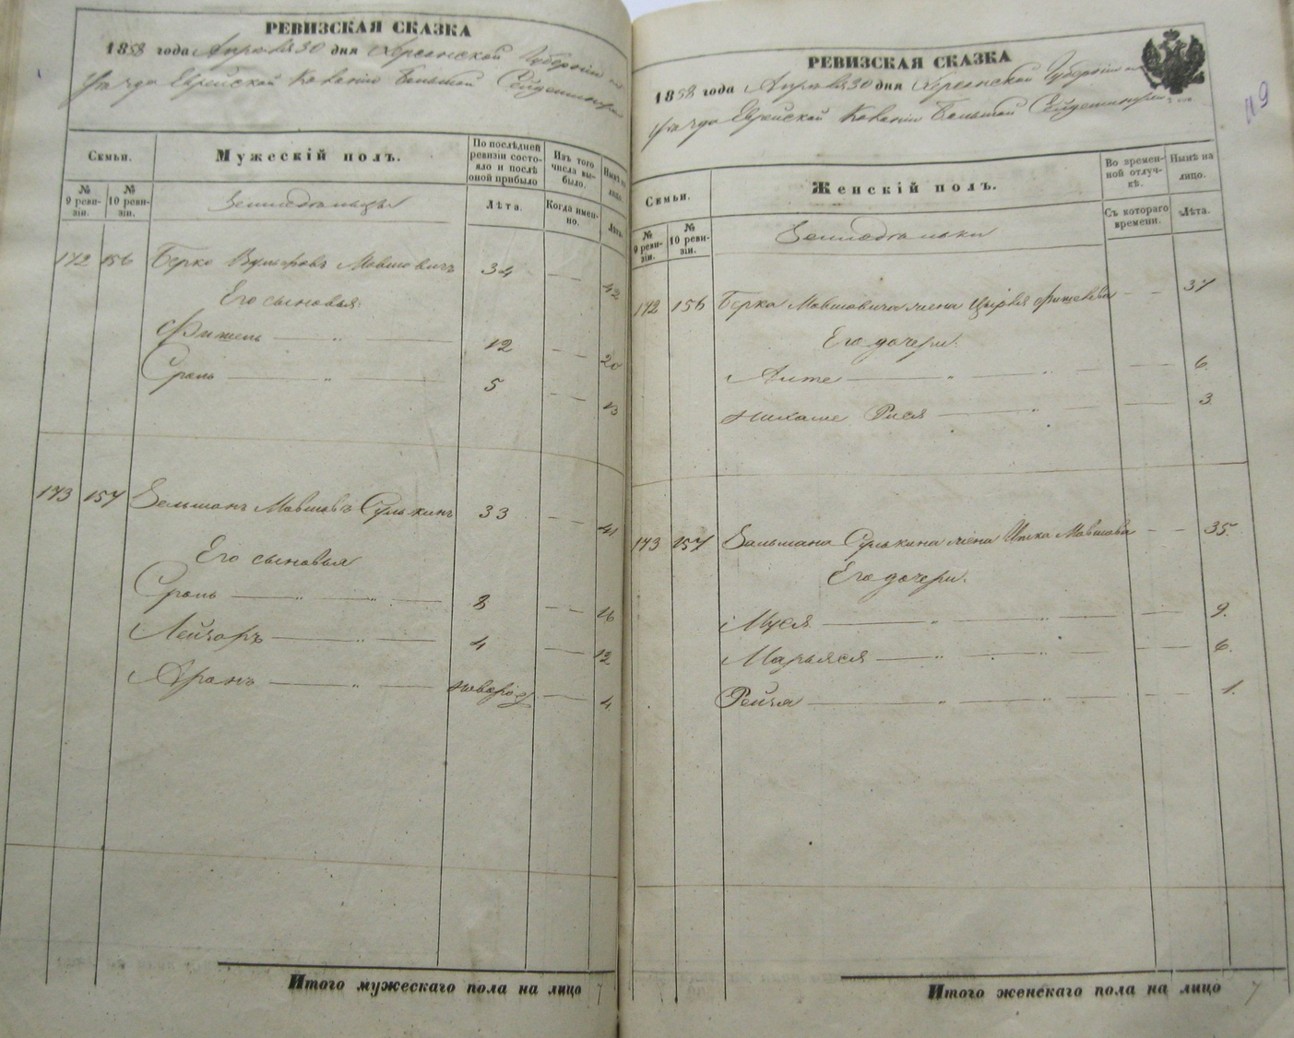 РЕВИЗСКАЯ СКАЗКА
1858 года Апреля 30 дня Херсонской Губернии
уезда Еврейской Колонии Большой Сейдеминухи
Семьи.
Мужескій полъ.
По послѣдней ревизіи состояло и послѣ оной прибыло
Изъ того числа выбыло.
Нынѣ на лицо.
№ 9 ревизіи.
№ 10 ревизіи.
Земледельцы
Лѣта.
Когда именно.
Лѣта.
172 156 Берко Мовшовичъ 34 — — 42
Его сыновья
Фишель — „ — 12 — — 20
Сроль — „ — 5 — — 13
173 157 Зельманъ Мовшовъ Сулькинъ 33 — — 41
Его сыновья
Сроль — „ — „ — 8 — — 16
Лейзоръ — „ — 4 — — 12
Аронъ — „ — новорож — 4
Итого мужескаго пола на лицо 7
РЕВИЗСКАЯ СКАЗКА
1858 года Апреля 30 дня Херсонской Губернии
уезда Еврейской Колонии Большой Сейдеминухи
119
Семьи.
Женскій полъ.
Во временной отлучкѣ.
Нынѣ на лицо.
№ 9 ревизіи.
№ 10 ревизіи.
Земледельки
Съ котораго времени.
Лѣта.
172 156 Берка Мовшовича жена Цырля Фишелева — — 37
Его дочери.
Алте — „ — „ — — 6.
Рися — „ — — 3
173 157 Зельмана Сулькина жена Мовшова — — 35.
Его дочери.
Муся — „ — „ — — 9.
Марьяся — „ — „ — — 6.
Рейзя — „ — „ — — 1.
Итого женскаго пола на лицо 7